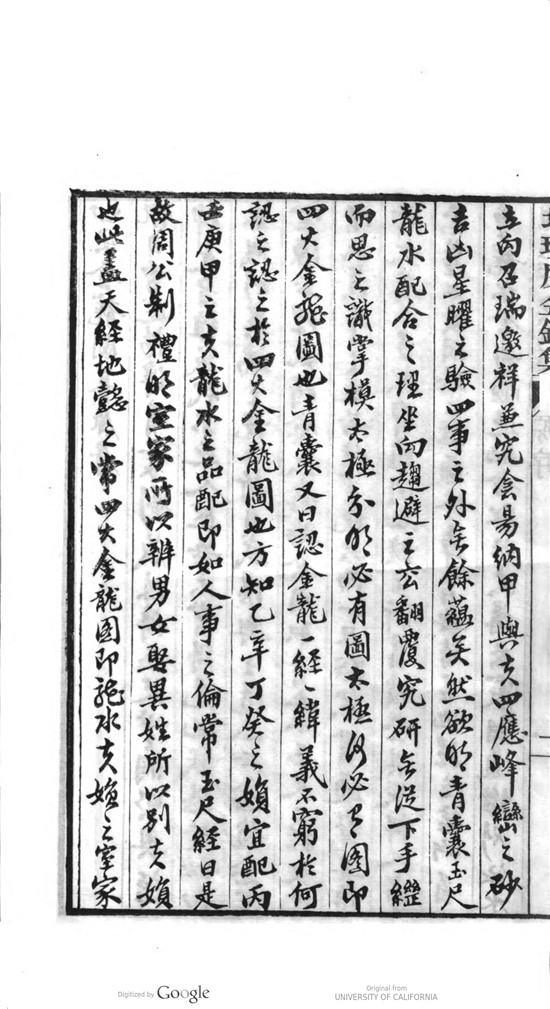 立向召瑞邀祥兼究会昜納甲與夫四應峰巒之砂
吉凶星曜之驗四事之外无餘蘊矣然欲明青囊玉尺
龍水配合之理坐向趨避之玄翻覆究研无從下手繼
而思之識掌模太極分明必有圖太極何必有图即
四大金龍圖也青囊又曰認金龍一經一緯義不窮於何
認之認之於四大金龍圖也方知乙辛丁癸之婦宜配丙
壬庚甲之夫龍水之品配即如人事之倫常玉尺經曰是
故周公制禮明室家所以辨男女娶異姓所以别夫婦
也此盖天經地懿之常四大金龍图即龍水夫婦之室家
Digitized by Google
Original from
UNIVERSITY OF CALIFORNIA